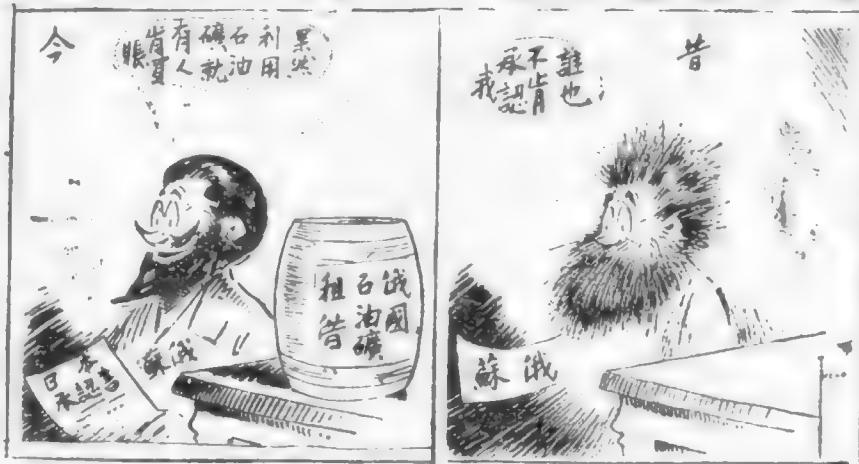 昔
誰也
不肯
承認
我
蘇俄
今
果然
利用
石油
礦就
有人
肯買
賬
俄國
石油礦
租借
蘇俄
日本
承認書